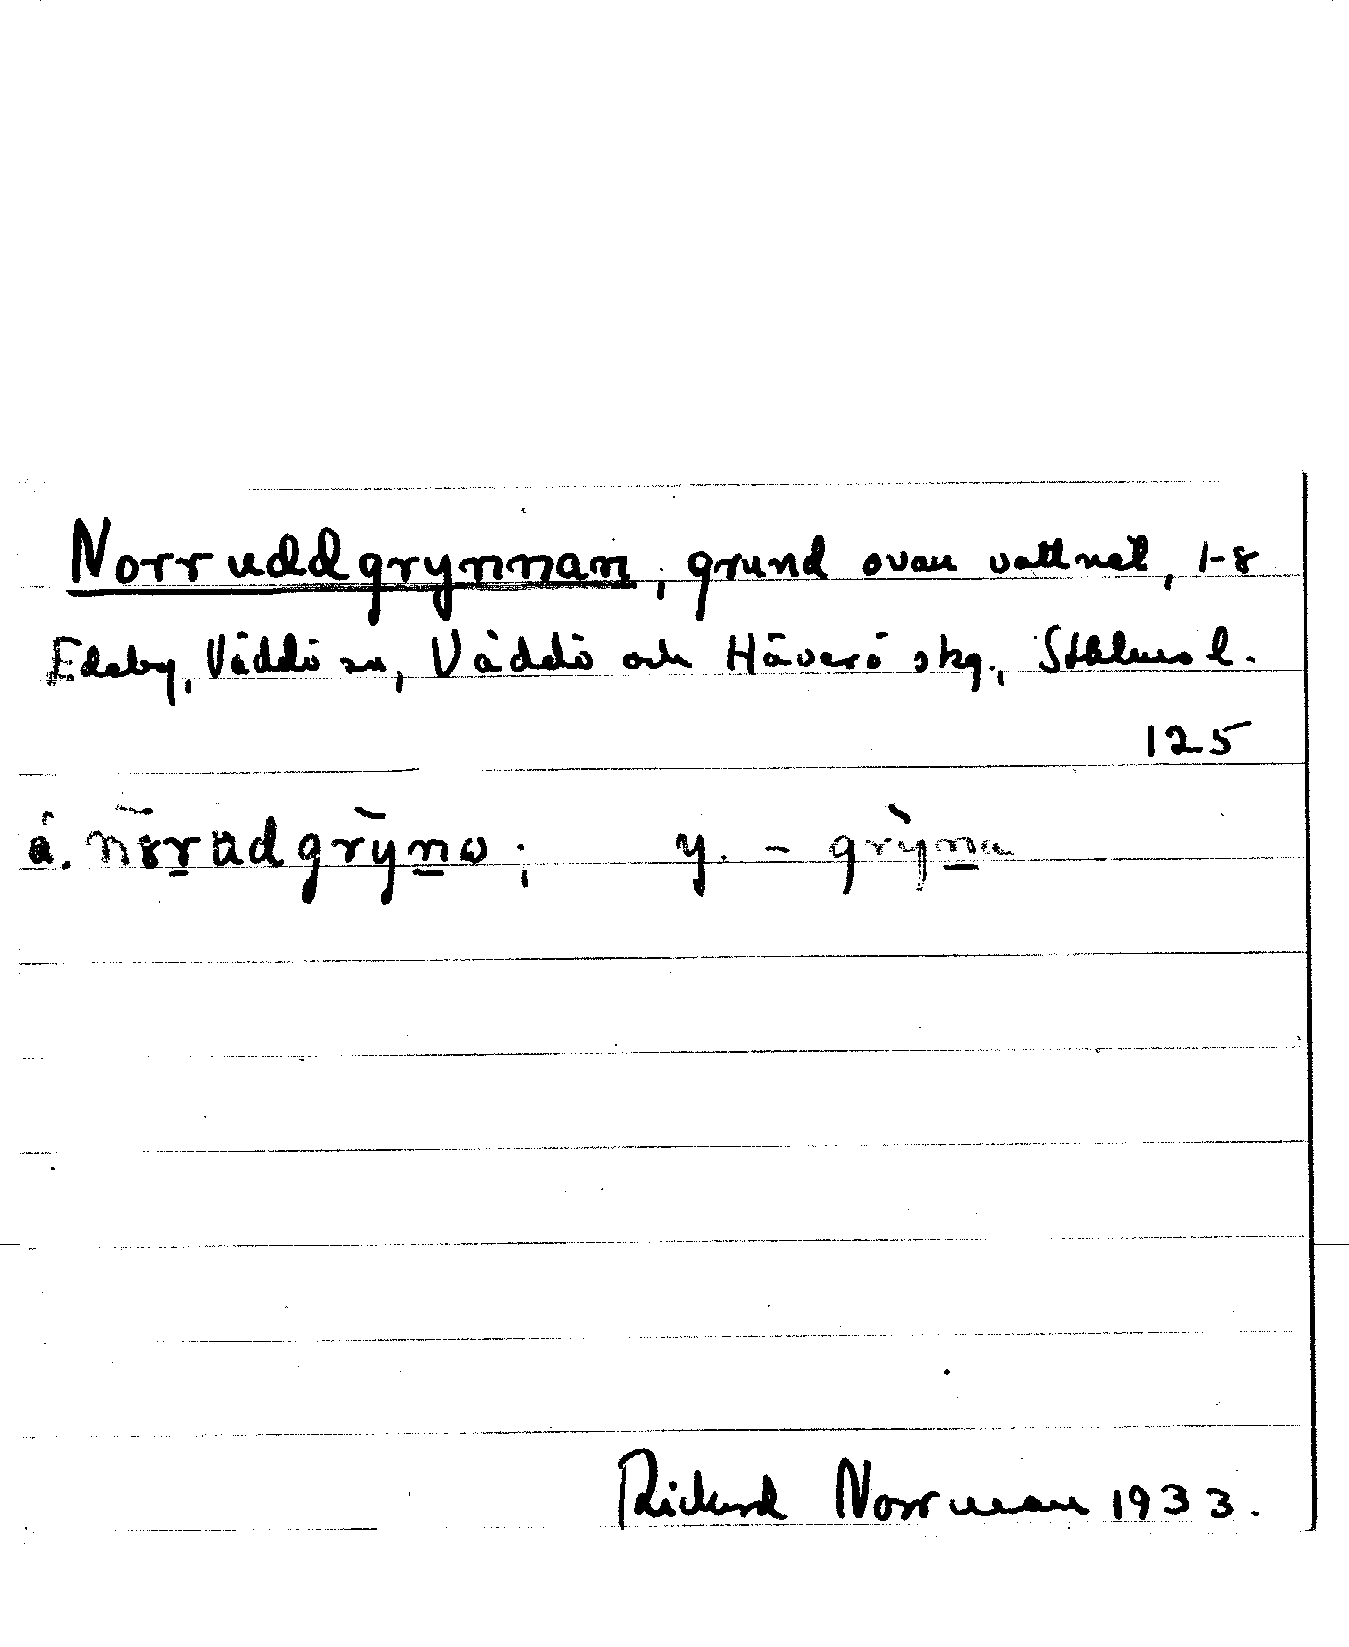 Norruddgrynnan, grund ovan vattnet, 1-8
Edeby, Väddö sn, Väddö och Häverö skg., Sthlms l.
125
ä. nörudgryno; y. - gryna
Rickard Norrman 1933.